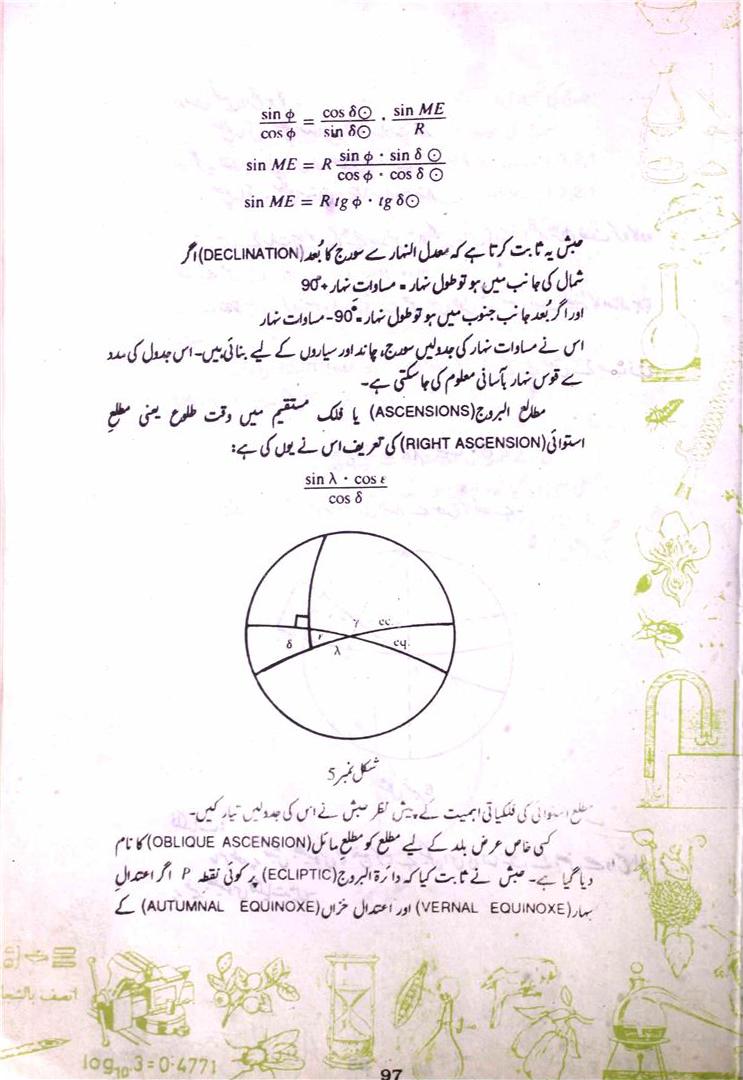 sin φ / cos φ = cos δ☉ / sin δ☉ · sin ME / R
sin ME = R sin φ · sin δ ☉ / cos φ · cos δ ☉
sin ME = R tg φ · tg δ☉
حبش یہ ثابت کرتا ہے کہ معدل النہار سے سورج کا بُعد (DECLINATION) اگر
شمال کی جانب میں ہو تو طول نہار = مساوات نہار + 90°
اور اگر بُعد جانب جنوب میں ہو تو طول نہار = 90° - مساوات نہار
اس نے مساوات نہار کی جدولیں سورج، چاند اور سیاروں کے لیے بنائی ہیں۔ اس جدول کی مدد
سے قوس نہار بآسانی معلوم کی جا سکتی ہے۔
مطالع البروج (ASCENSIONS) یا فلک مستقیم میں وقت طلوع یعنی مطلع
استوائی (RIGHT ASCENSION) کی تعریف اس نے یوں کی ہے:
sin λ · cos ε / cos δ
γ ec.
δ r eq.
λ
شکل نمبر 5
مطلع استوائی کی فلکیاتی اہمیت کے پیش نظر حبش نے اس کی جدولیں تیار کیں۔
کسی خاص عرض بلد کے لیے مطلع کو مطلع مائل (OBLIQUE ASCENSION) کا نام
دیا گیا ہے۔ حبش نے ثابت کیا کہ دائرۃ البروج (ECLIPTIC) پر کوئی نقطہ P اگر اعتدالِ
بہار (VERNAL EQUINOXE) اور اعتدال خزاں (AUTUMNAL EQUINOXE) کے
log₁₀ 3 = 0·4771
97